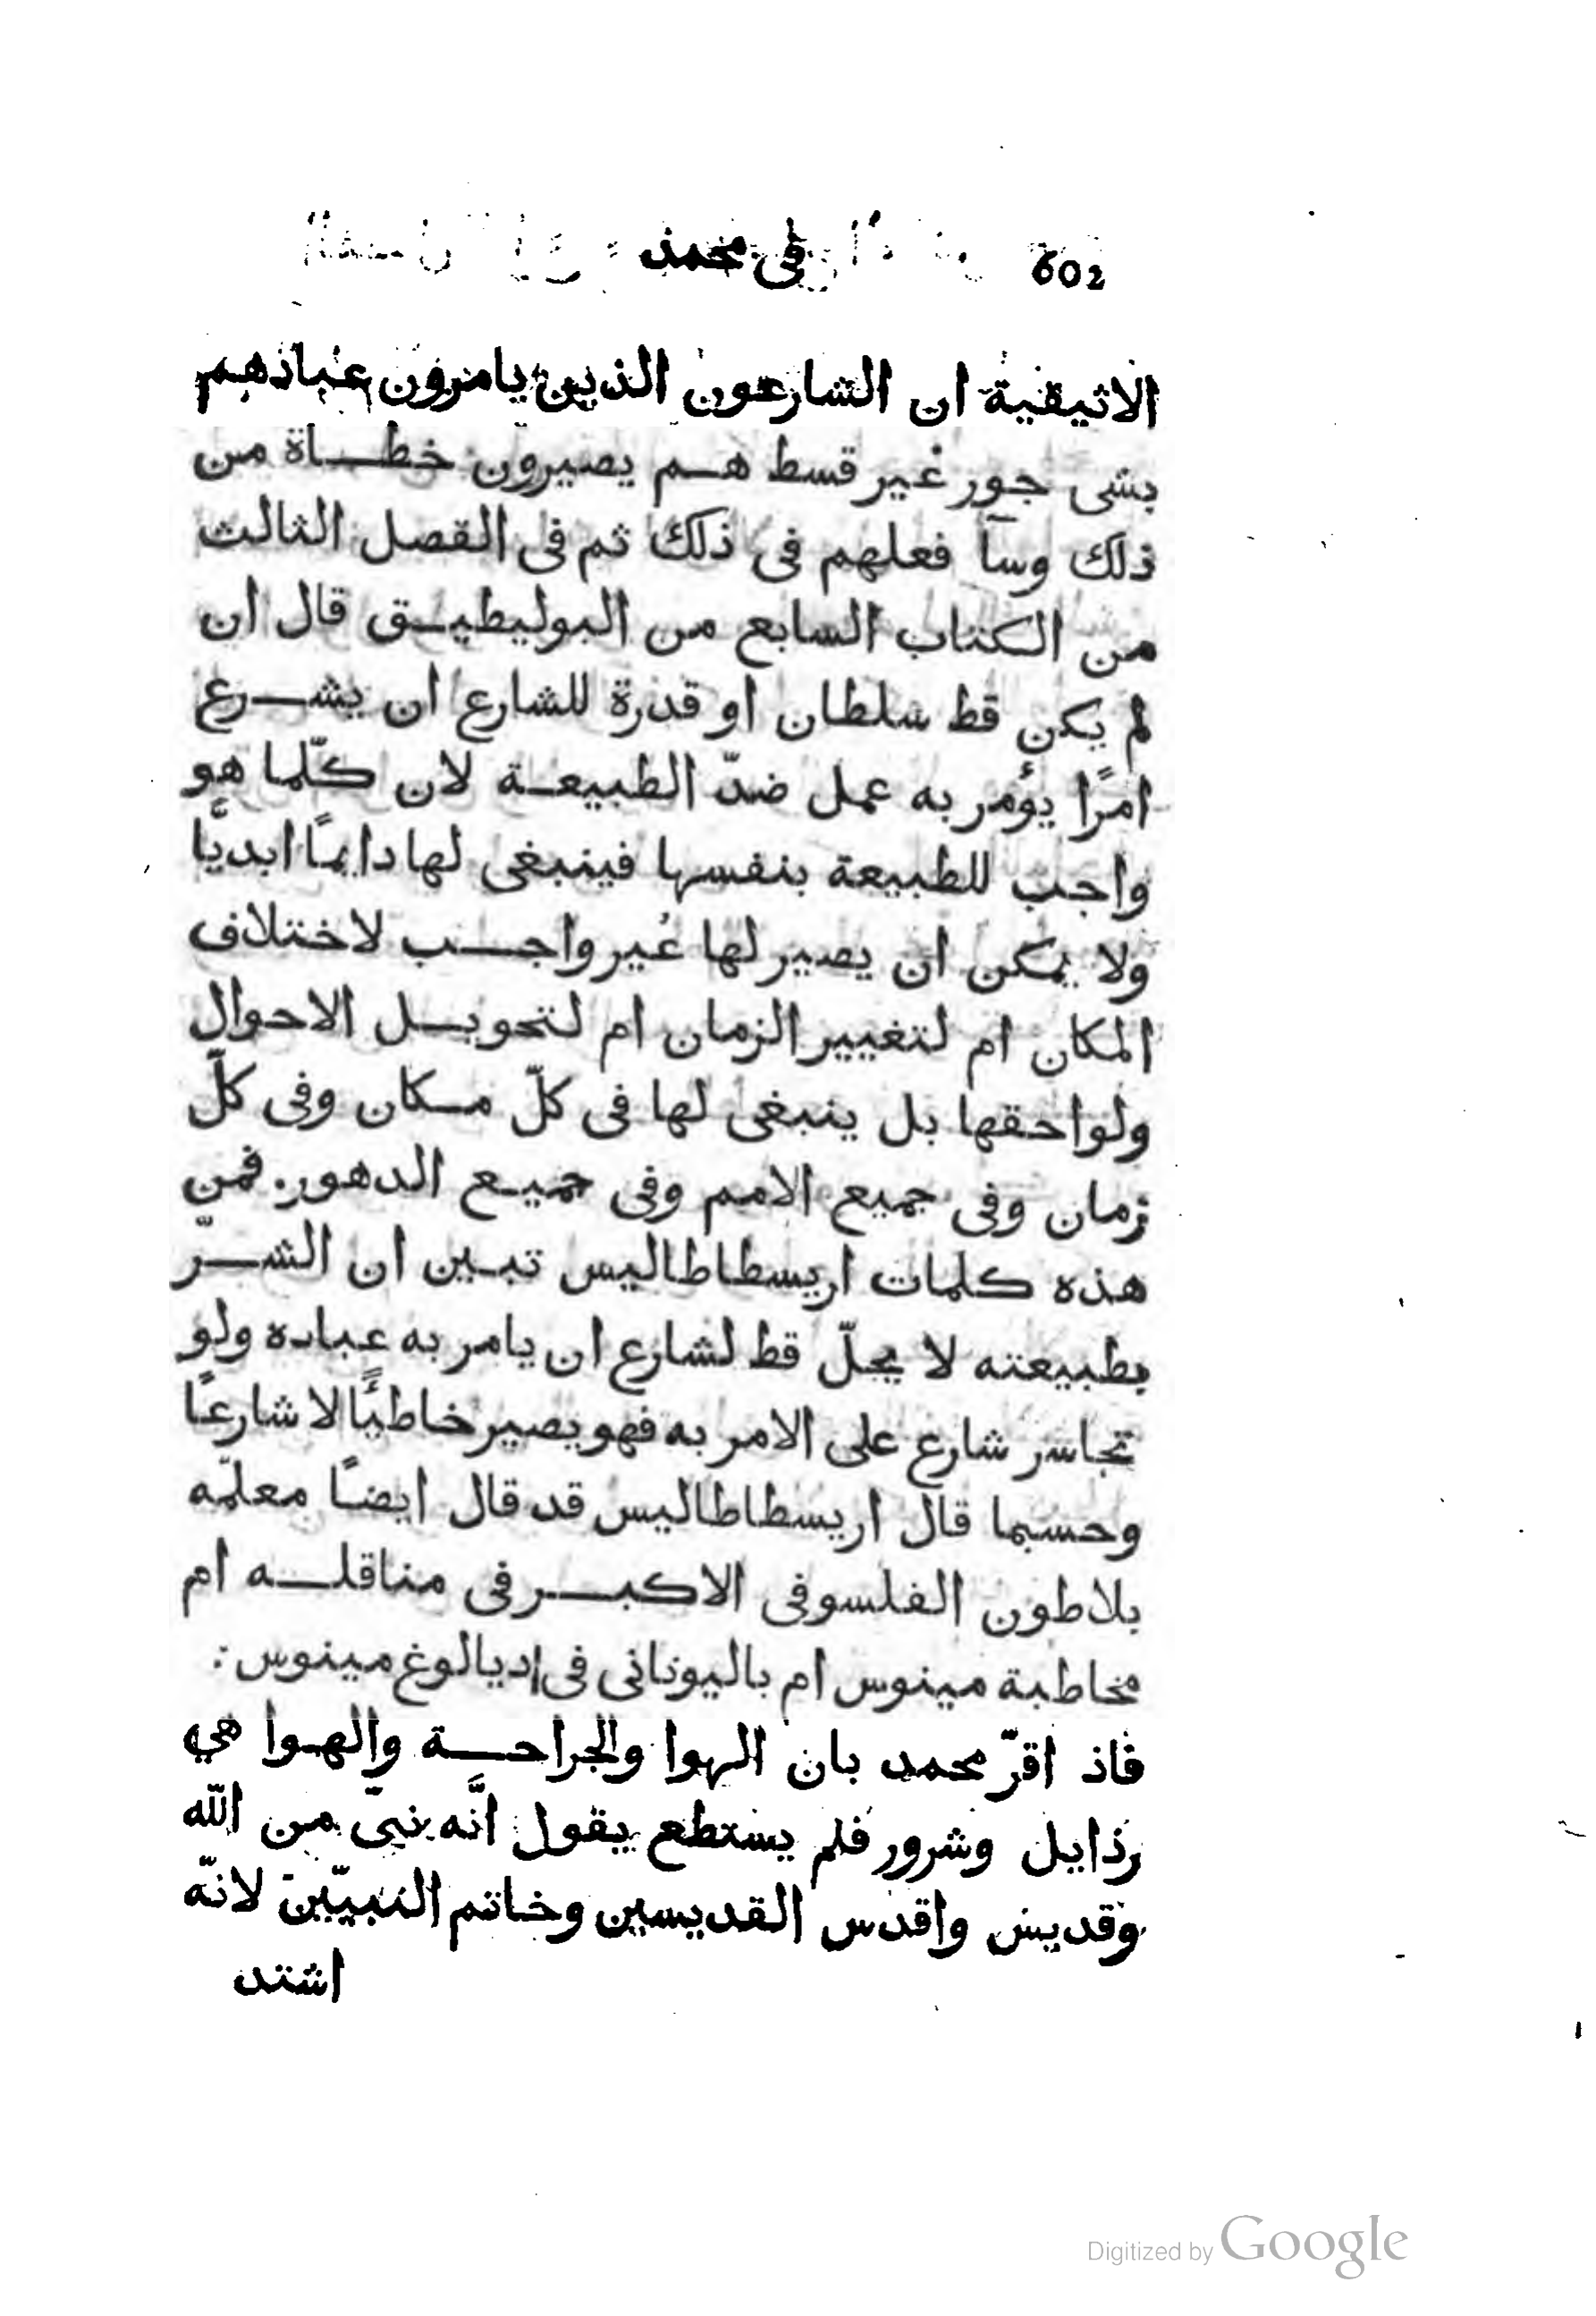 602 فى محمد
الاثيقية ان الشارعون الذين يامرون عبادهم
بشى جور غير قسط هم يصيرون خطاة من
ذلك وسآ فعلهم فى ذلك ثم فى الفصل الثالث
من الكتاب السابع من البوليطيق قال ان
لم يكن قط سلطان او قدرة للشارع ان يشرع
امرًا يؤمر به عمل ضدّ الطبيعة لان كلّما هو
واجب للطبيعة بنفسها فينبغى لها دايمًا ابديًّا
ولا يمكن ان يصير لها غير واجب لاختلاف
المكان ام لتغيير الزمان ام لتحويل الاحوال
ولواحقها بل ينبغى لها فى كلّ مكان وفى كلّ
زمان وفى جميع الامم وفى جميع الدهور. فمن
هذه كلمات اريسطاطاليس تبين ان الشرّ
بطبيعته لا يحلّ قط لشارع ان يامر به عباده ولو
تجاسر شارع على الامر به فهو يصير خاطيًا لا شارعًا
وحسبما قال اريسطاطاليس قد قال ايضًا معلمّه
بلاطون الفلسوفى الاكبر فى مناقله ام
مخاطبة مينوس ام باليونانى فى اديالوغ مينوس :
فاذ اقرّ محمد بان الهوا والجراحة والهوا هي
رذايل وشرور فلم يستطع يقول انَّه نبىّ من اللّه
وقديس واقدس القديسين وخاتم النبيّين لانّه
اشتد
Digitized by Google